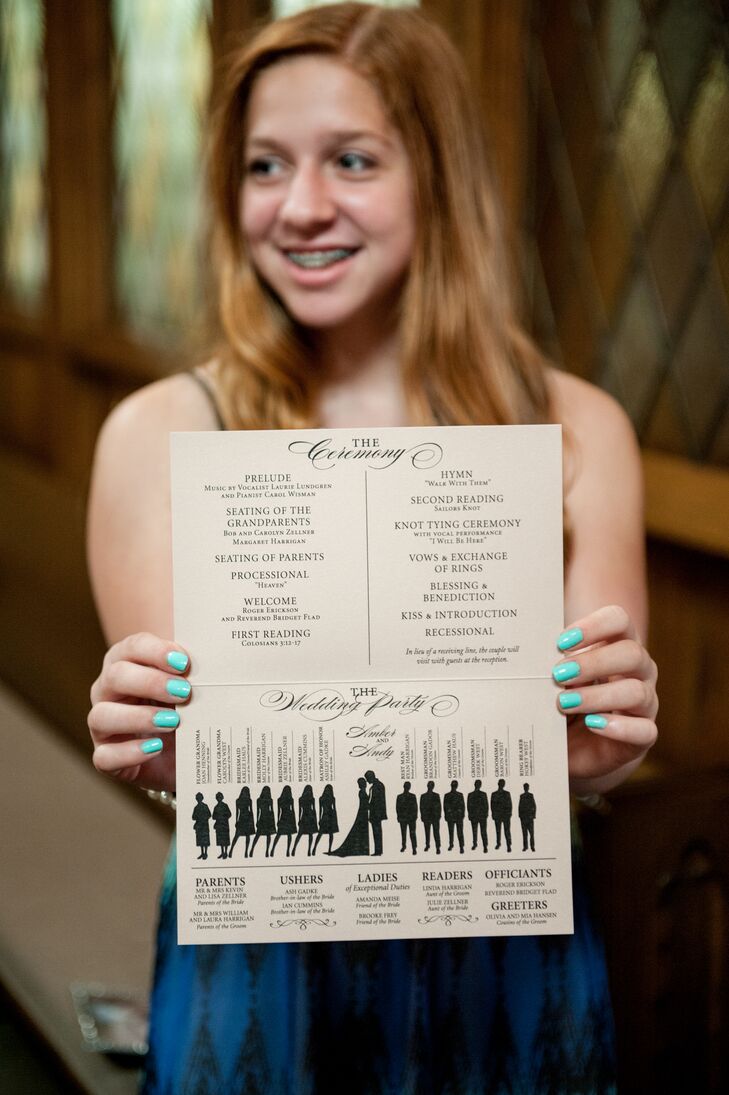 THE
Ceremony
PRELUDE
MUSIC BY VOCALIST LAURIE LUNDGREN
AND PIANIST CAROL WISMAN
SEATING OF THE
GRANDPARENTS
BOB AND CAROLYN ZELLNER
MARGARET HARRIGAN
SEATING OF PARENTS
PROCESSIONAL
"HEAVEN"
WELCOME
ROGER ERICKSON
AND REVEREND BRIDGET FLAD
FIRST READING
COLOSSIANS 3:12-17
HYMN
"WALK WITH THEM"
SECOND READING
SAILORS KNOT
KNOT TYING CEREMONY
WITH VOCAL PERFORMANCE
"I WILL BE HERE"
VOWS & EXCHANGE
OF RINGS
BLESSING &
BENEDICTION
KISS & INTRODUCTION
RECESSIONAL
In lieu of a receiving line, the couple will
visit with guests at the reception.
THE
Wedding Party
FLOWER GRANDMA
JOAN HENNING
FLOWER GRANDMA
CAROLYN WEST
BRIDESMAID
BRIDESMAID
MOLLY HARRIGAN
BRIDESMAID
ZELLNER
BRIDESMAID
ALEXIS CUMMINS
MATRON OF HONOR
ASHLEY GADKE
Amber
AND
Andy
BEST MAN
DAN HARRIGAN
GROOMSMAN
BRANDON GABOR
GROOMSMAN
MATTHEW HAUS
GROOMSMAN
DEREK WEST
GROOMSMAN
AARON WEST
RING BEARER
HENRY WEST
PARENTS
MR & MRS KEVIN
AND LISA ZELLNER
Parents of the Bride
MR & MRS WILLIAM
AND LAURA HARRIGAN
Parents of the Groom
USHERS
ASH GADKE
Brother-in-law of the Bride
IAN CUMMINS
Brother-in-law of the Bride
LADIES
of Exceptional Duties
AMANDA MEISE
Friend of the Bride
BROOKE FREY
Friend of the Bride
READERS
LINDA HARRIGAN
Aunt of the Groom
JULIE ZELLNER
Aunt of the Bride
OFFICIANTS
ROGER ERICKSON
REVEREND BRIDGET FLAD
GREETERS
OLIVIA AND MIA HANSEN
Cousins of the Groom